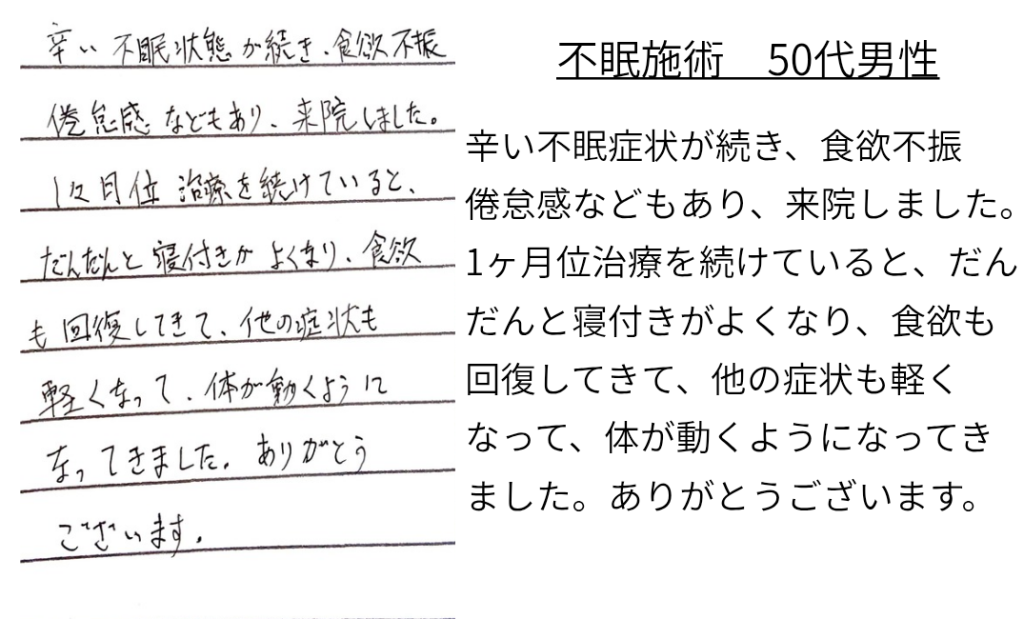 辛い不眠状態が続き、食欲不振
倦怠感などもあり、来院しました。
1ヶ月位 治療を続けていると、
だんだんと寝付きがよくなり、食欲
も回復してきて、他の症状も
軽くなって、体が動くように
なってきました。ありがとう
ございます。
不眠施術　50代男性
辛い不眠症状が続き、食欲不振
倦怠感などもあり、来院しました。
1ヶ月位治療を続けていると、だん
だんと寝付きがよくなり、食欲も
回復してきて、他の症状も軽く
なって、体が動くようになってき
ました。ありがとうございます。